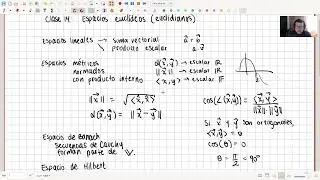 Clase 14 Espacios euclídeos (euclidianos)
Espacios lineales → suma vectorial
producto escalar
Espacios métricos d(x⃗,y⃗) → escalar ℝ
normados ‖x⃗‖ → escalar ℝ
con producto interno ⟨x⃗,y⃗⟩ → escalar
‖x⃗‖ = √⟨x⃗,x⃗⟩
d(x⃗,y⃗) = ‖x⃗-y⃗‖
cos(∠(x⃗,y⃗)) = ⟨x⃗,y⃗⟩ / ‖x⃗‖·‖y⃗‖
Si x⃗ y y⃗ son ortogonales,
⟨x⃗,y⃗⟩ = 0
cos(θ) = 0
θ = π/2 = 90°
Espacio de Banach
Secuencias de Cauchy
forman parte de
Espacio de Hilbert